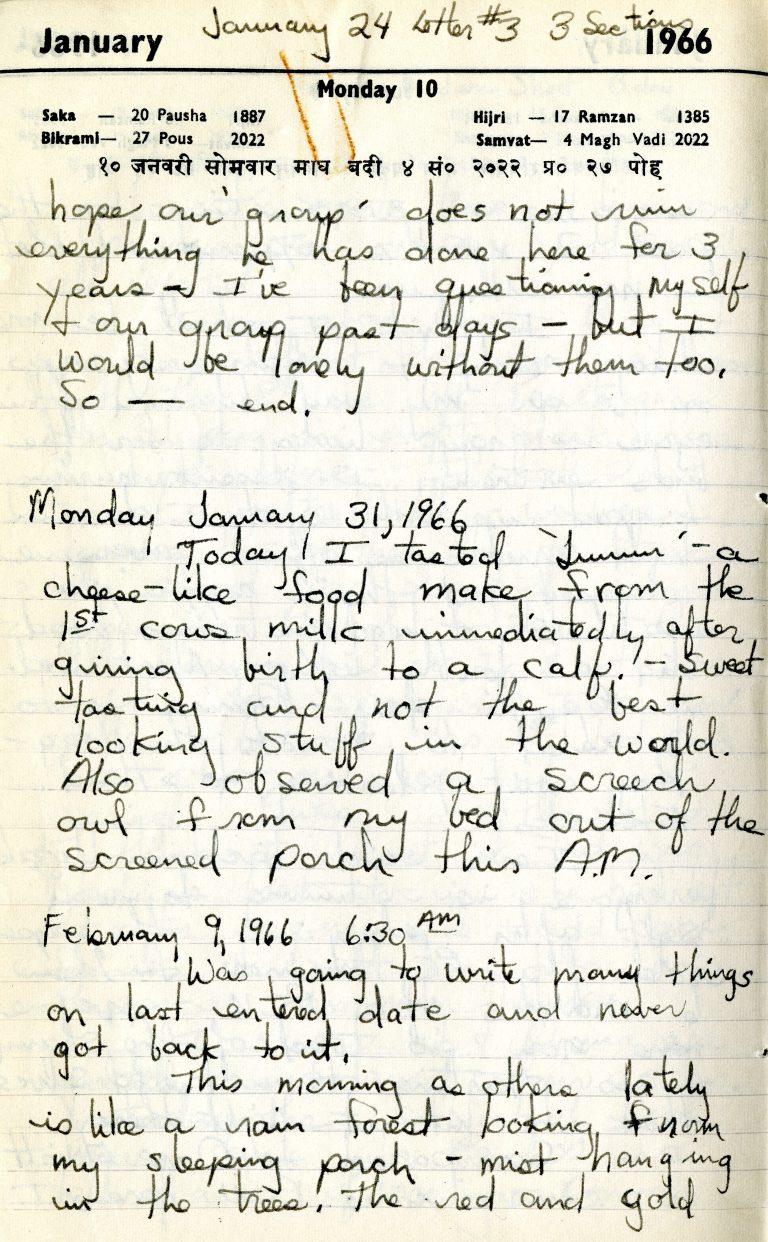 January 24 Letter #3 3 Sections
January 1966
Monday 10
Saka — 20 Pausha 1887 Hijri — 17 Ramzan 1385
Bikrami— 27 Pous 2022 Samvat— 4 Magh Vadi 2022
१० जनवरी सोमवार माघ बदी ४ सं० २०२२ प्र० २७ पोह
hope our 'group' does not ruin
everything he has done here for 3
years – I've been questioning myself
+ our group past days – but I
would be lonely without them too.
So — end.
Monday January 31, 1966
Today I tasted – a
cheese-like food make from the
1st cows milk immediatedly after
giving birth to a calf. – Sweet
tasting and not the best
looking stuff in the world.
Also observed a screech
owl from my bed out of the
screened porch this A.M.
February 9, 1966 6:30 AM
Was going to write many things
on last entered date and never
got back to it.
This morning as others lately
is like a rain forest looking from
my sleeping porch – mist hanging
in the trees. The red and gold